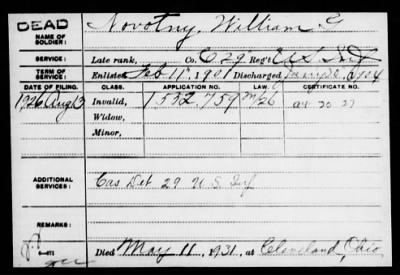 DEAD
NAME OF SOLDIER: Novotny, William G
SERVICE: Late rank, Co. C 29 Reg't U.S. Inf
TERM OF SERVICE: Enlisted Feb 11, 1901 Discharged 1904
DATE OF FILING. CLASS. APPLICATION NO. LAW. CERTIFICATE NO.
1926 Aug 13 Invalid, 1532759 M/26 a 4-20-27
Widow,
Minor,
ADDITIONAL SERVICES: Cas Det 29 U.S. Inf
REMARKS:
Died May 11, 1931, at Cleveland, Ohio